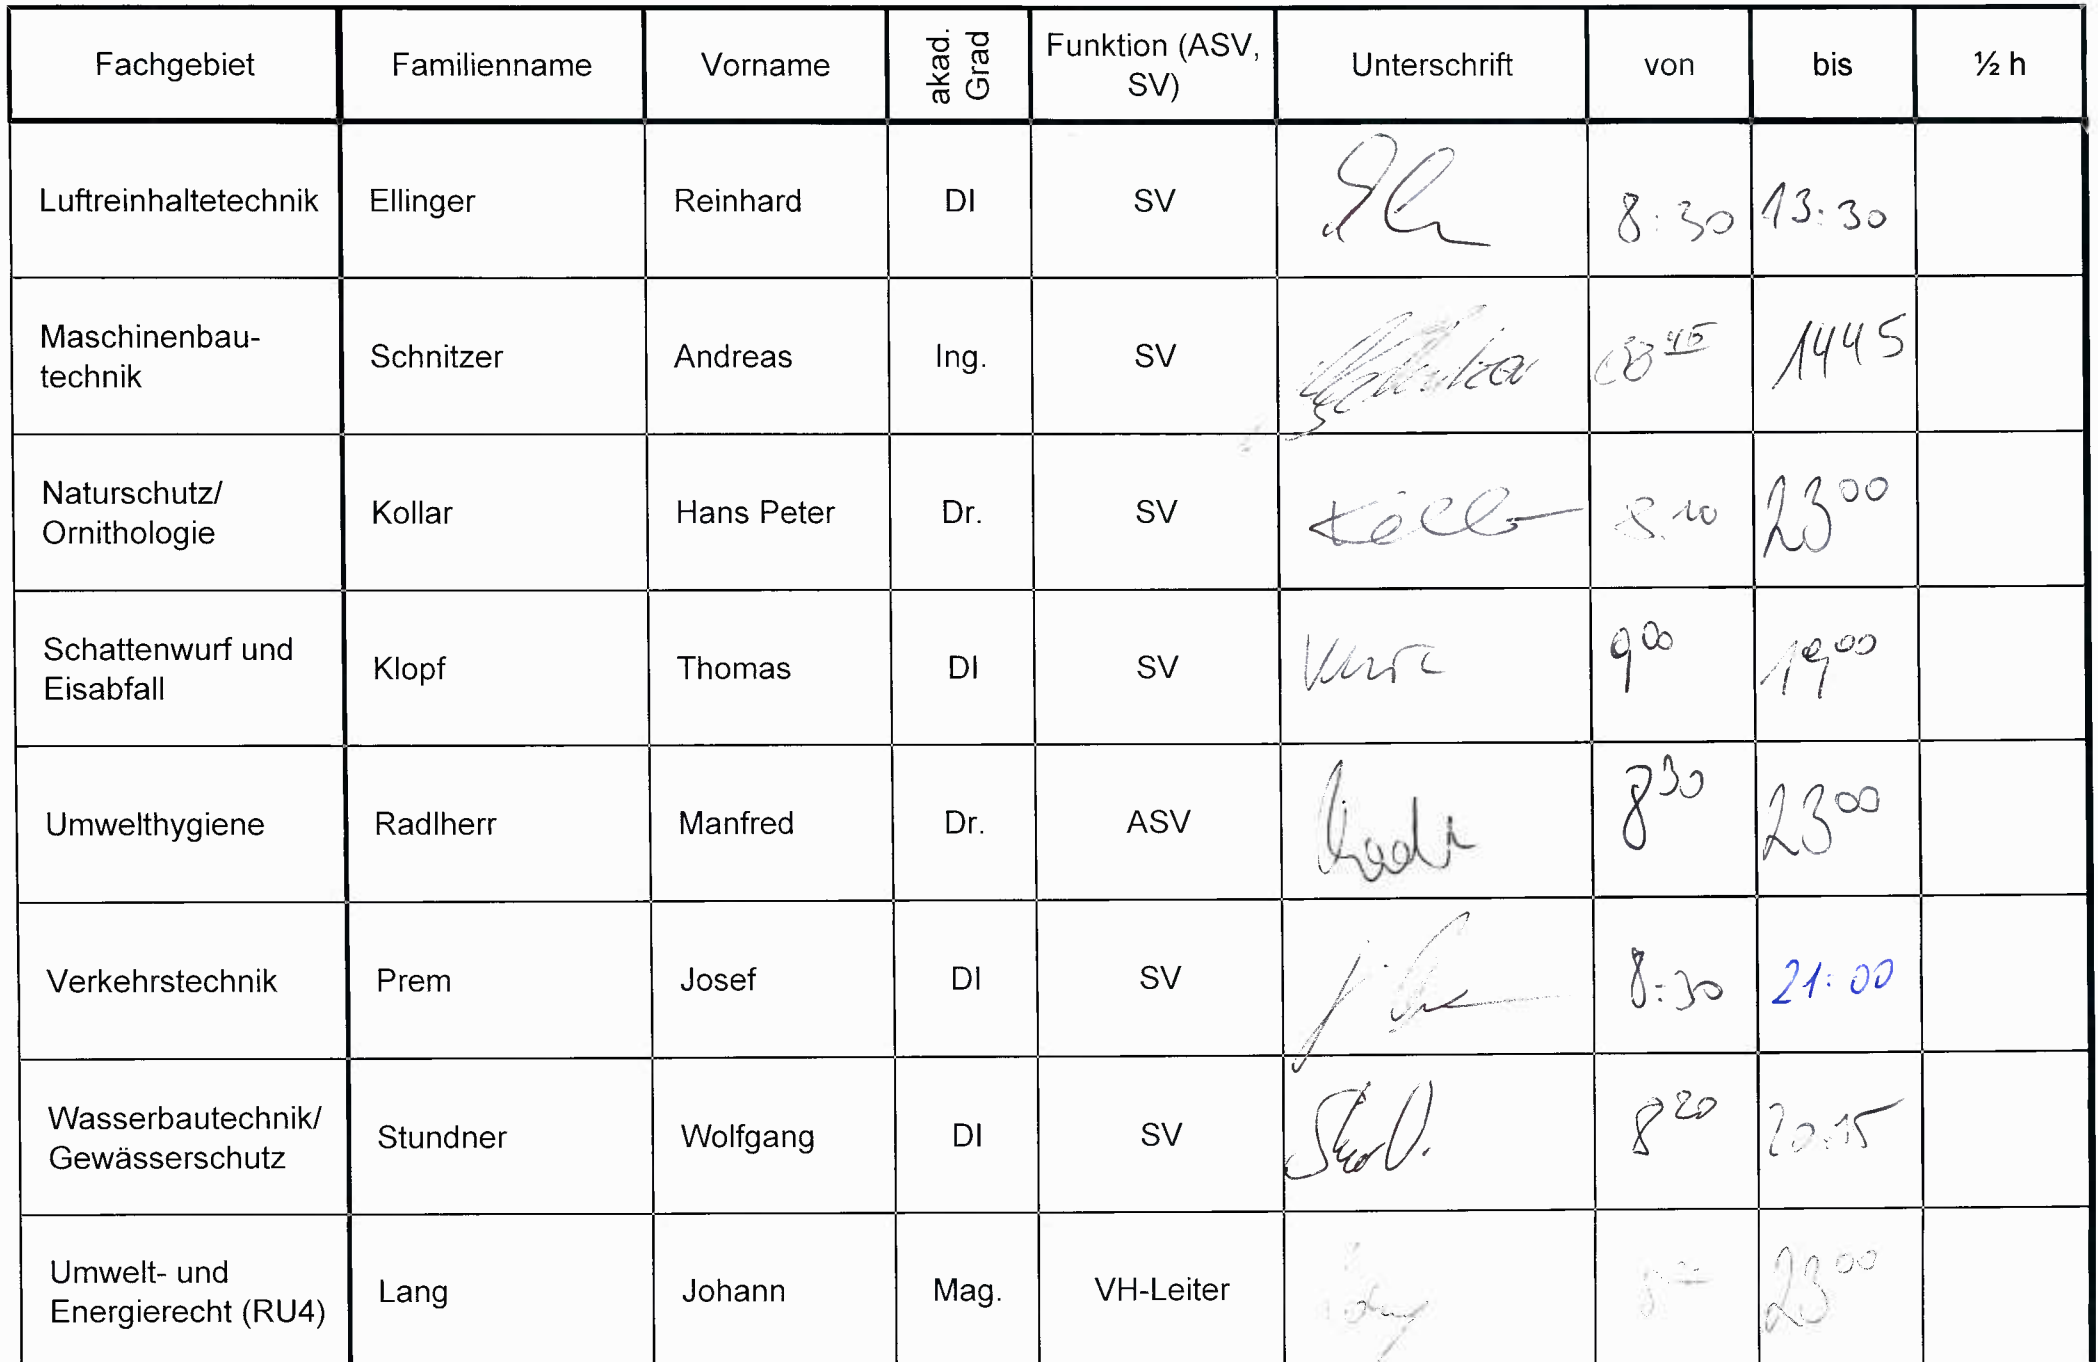 Fachgebiet Familienname Vorname akad. Grad Funktion (ASV, SV) Unterschrift von bis ½ h
Luftreinhaltetechnik Ellinger Reinhard DI SV 8:30 13:30
Maschinenbau-
technik Schnitzer Andreas Ing. SV 08 45 1445
Naturschutz/
Ornithologie Kollar Hans Peter Dr. SV 8.10 23 00
Schattenwurf und
Eisabfall Klopf Thomas DI SV 9 00 19 00
Umwelthygiene Radlherr Manfred Dr. ASV 8 30 23 00
Verkehrstechnik Prem Josef DI SV 8:30 21:00
Wasserbautechnik/
Gewässerschutz Stundner Wolfgang DI SV 8 20 20.15
Umwelt- und
Energierecht (RU4) Lang Johann Mag. VH-Leiter 23 00